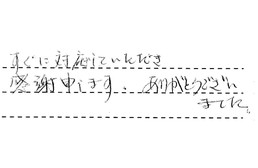 すぐに対応していただき
感謝申します、ありがとうござい
ました。